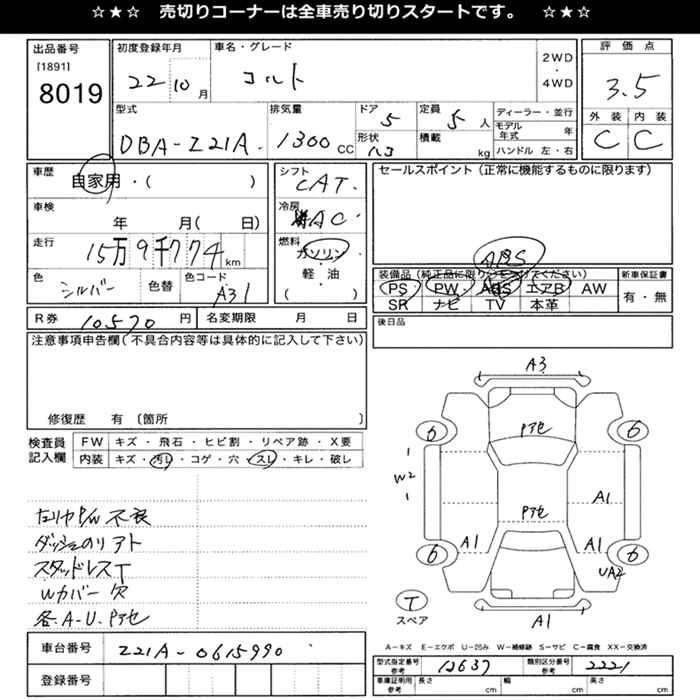 ☆★☆ 売切りコーナーは全車売り切りスタートです。 ☆★☆
出品番号
[1891]
8019
初度登録年月
22 10 月
車名・グレード
コルト
2WD
・
4WD
評価点
3.5
外装 内装
C C
型式
DBA-Z21A
排気量
1300 CC
ドア
5
形状
ハコ
定員
5 人
積載
kg
ディーラー・並行
モデル年式 年
ハンドル 左・右
車歴
自家用・( )
車検
年 月( 日)
走行
15万9千774 km
色
シルバー
色替
色コード
A31
シフト
CAT.
冷房
AC
燃料
ガソリン
・
軽・油
( )
セールスポイント (正常に機能するものに限ります)
ABS
装備品(純正品に限り○をつけてください)
PS PW ABS エアB AW
SR ナビ TV 本革
新車保証書
有・無
R券 10570 円
名変期限 月 日
後日品
注意事項申告欄(不具合内容等は具体的に記入して下さい)
修復歴 有 〔箇所 〕
検査員記入欄
FW キズ・飛石・ヒビ割・リペア跡・X要
内装 キズ・汚レ・コゲ・穴・スレ・キレ・破レ
ダッシュのリアト
スタッドレスT
Wカバー欠
各A-U.Pアセ
A3
6 Pアセ 6
W2
A1
Pアセ
A1 A1
6 6
UA2
T
スペア
A1
A-キズ E-エクボ U-凹み W-補修跡 S-サビ C-腐食 XX-交換済
車台番号 Z21A-0615990
登録番号
型式指定番号
参考
12637
類別区分番号
参考
2221
車庫証明用
参考
長さ cm 幅 cm 高さ cm